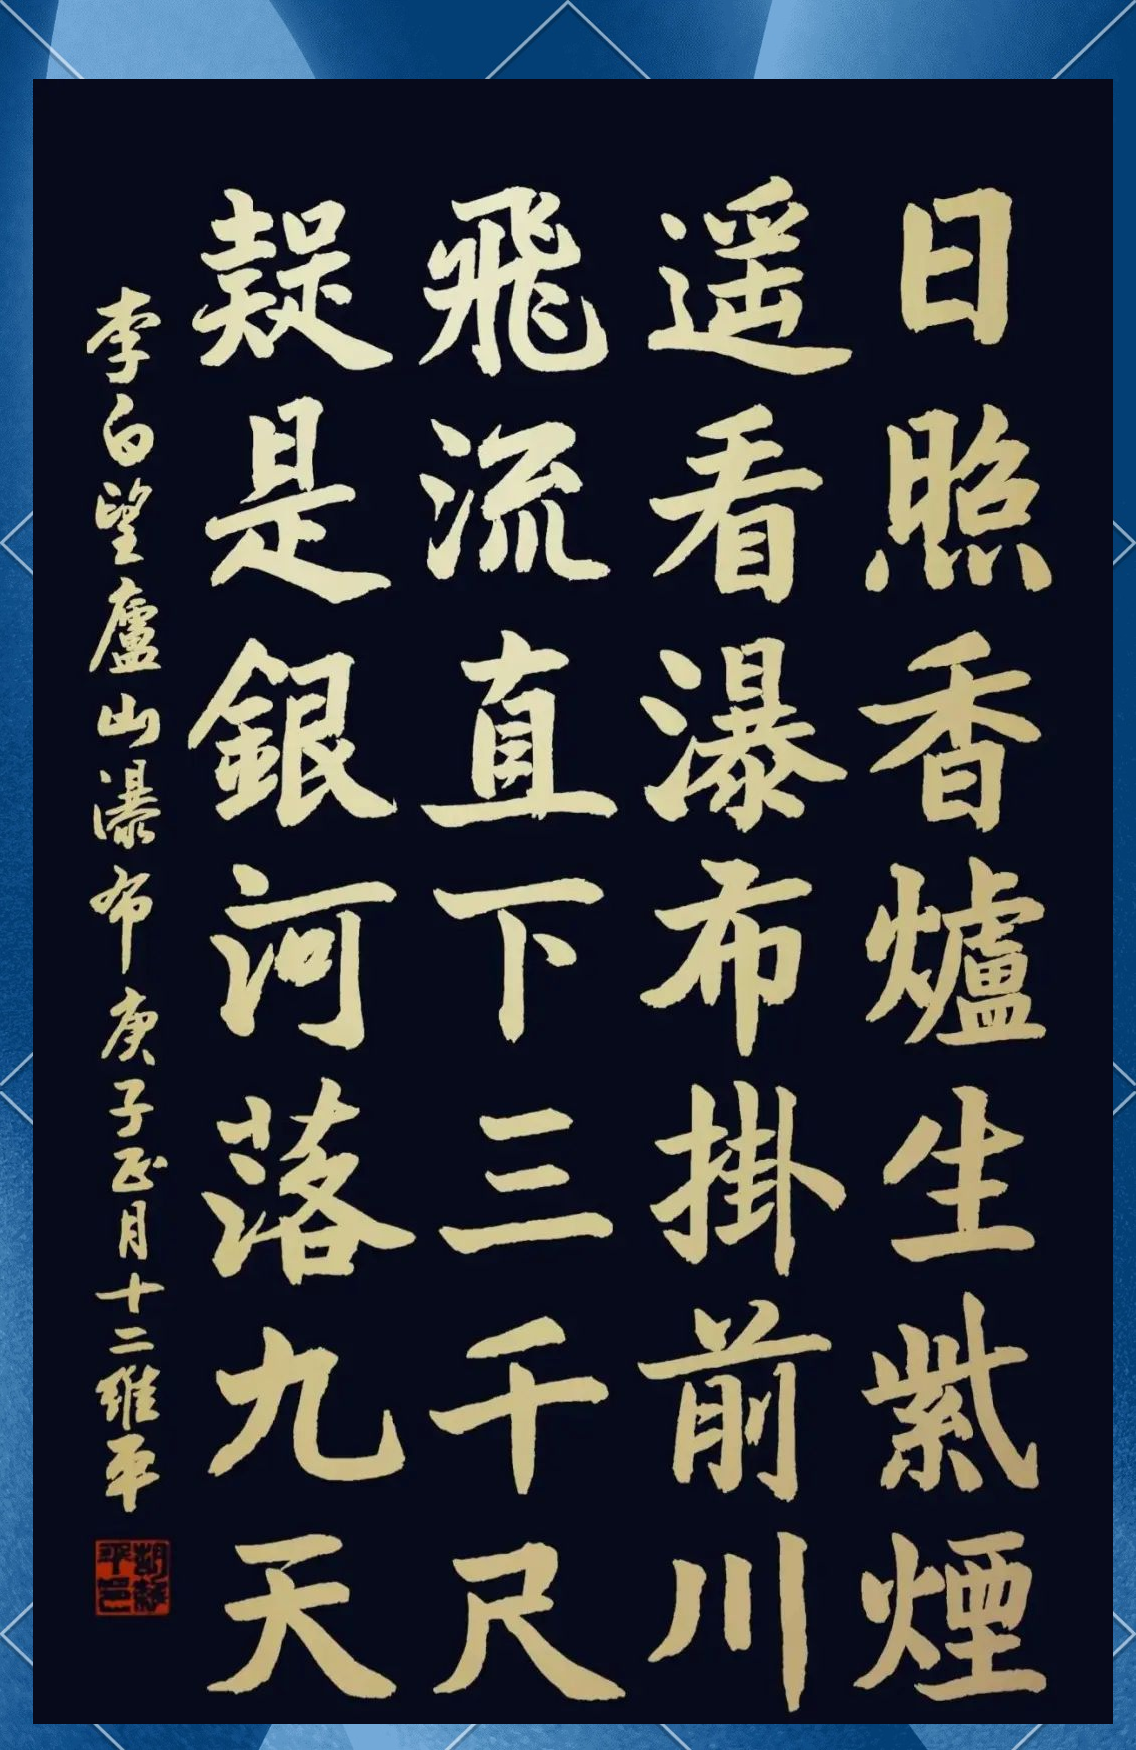 日照香爐生紫煙
遥看瀑布掛前川
飛流直下三千尺
疑是銀河落九天
李白望廬山瀑布庚子正月十二維平